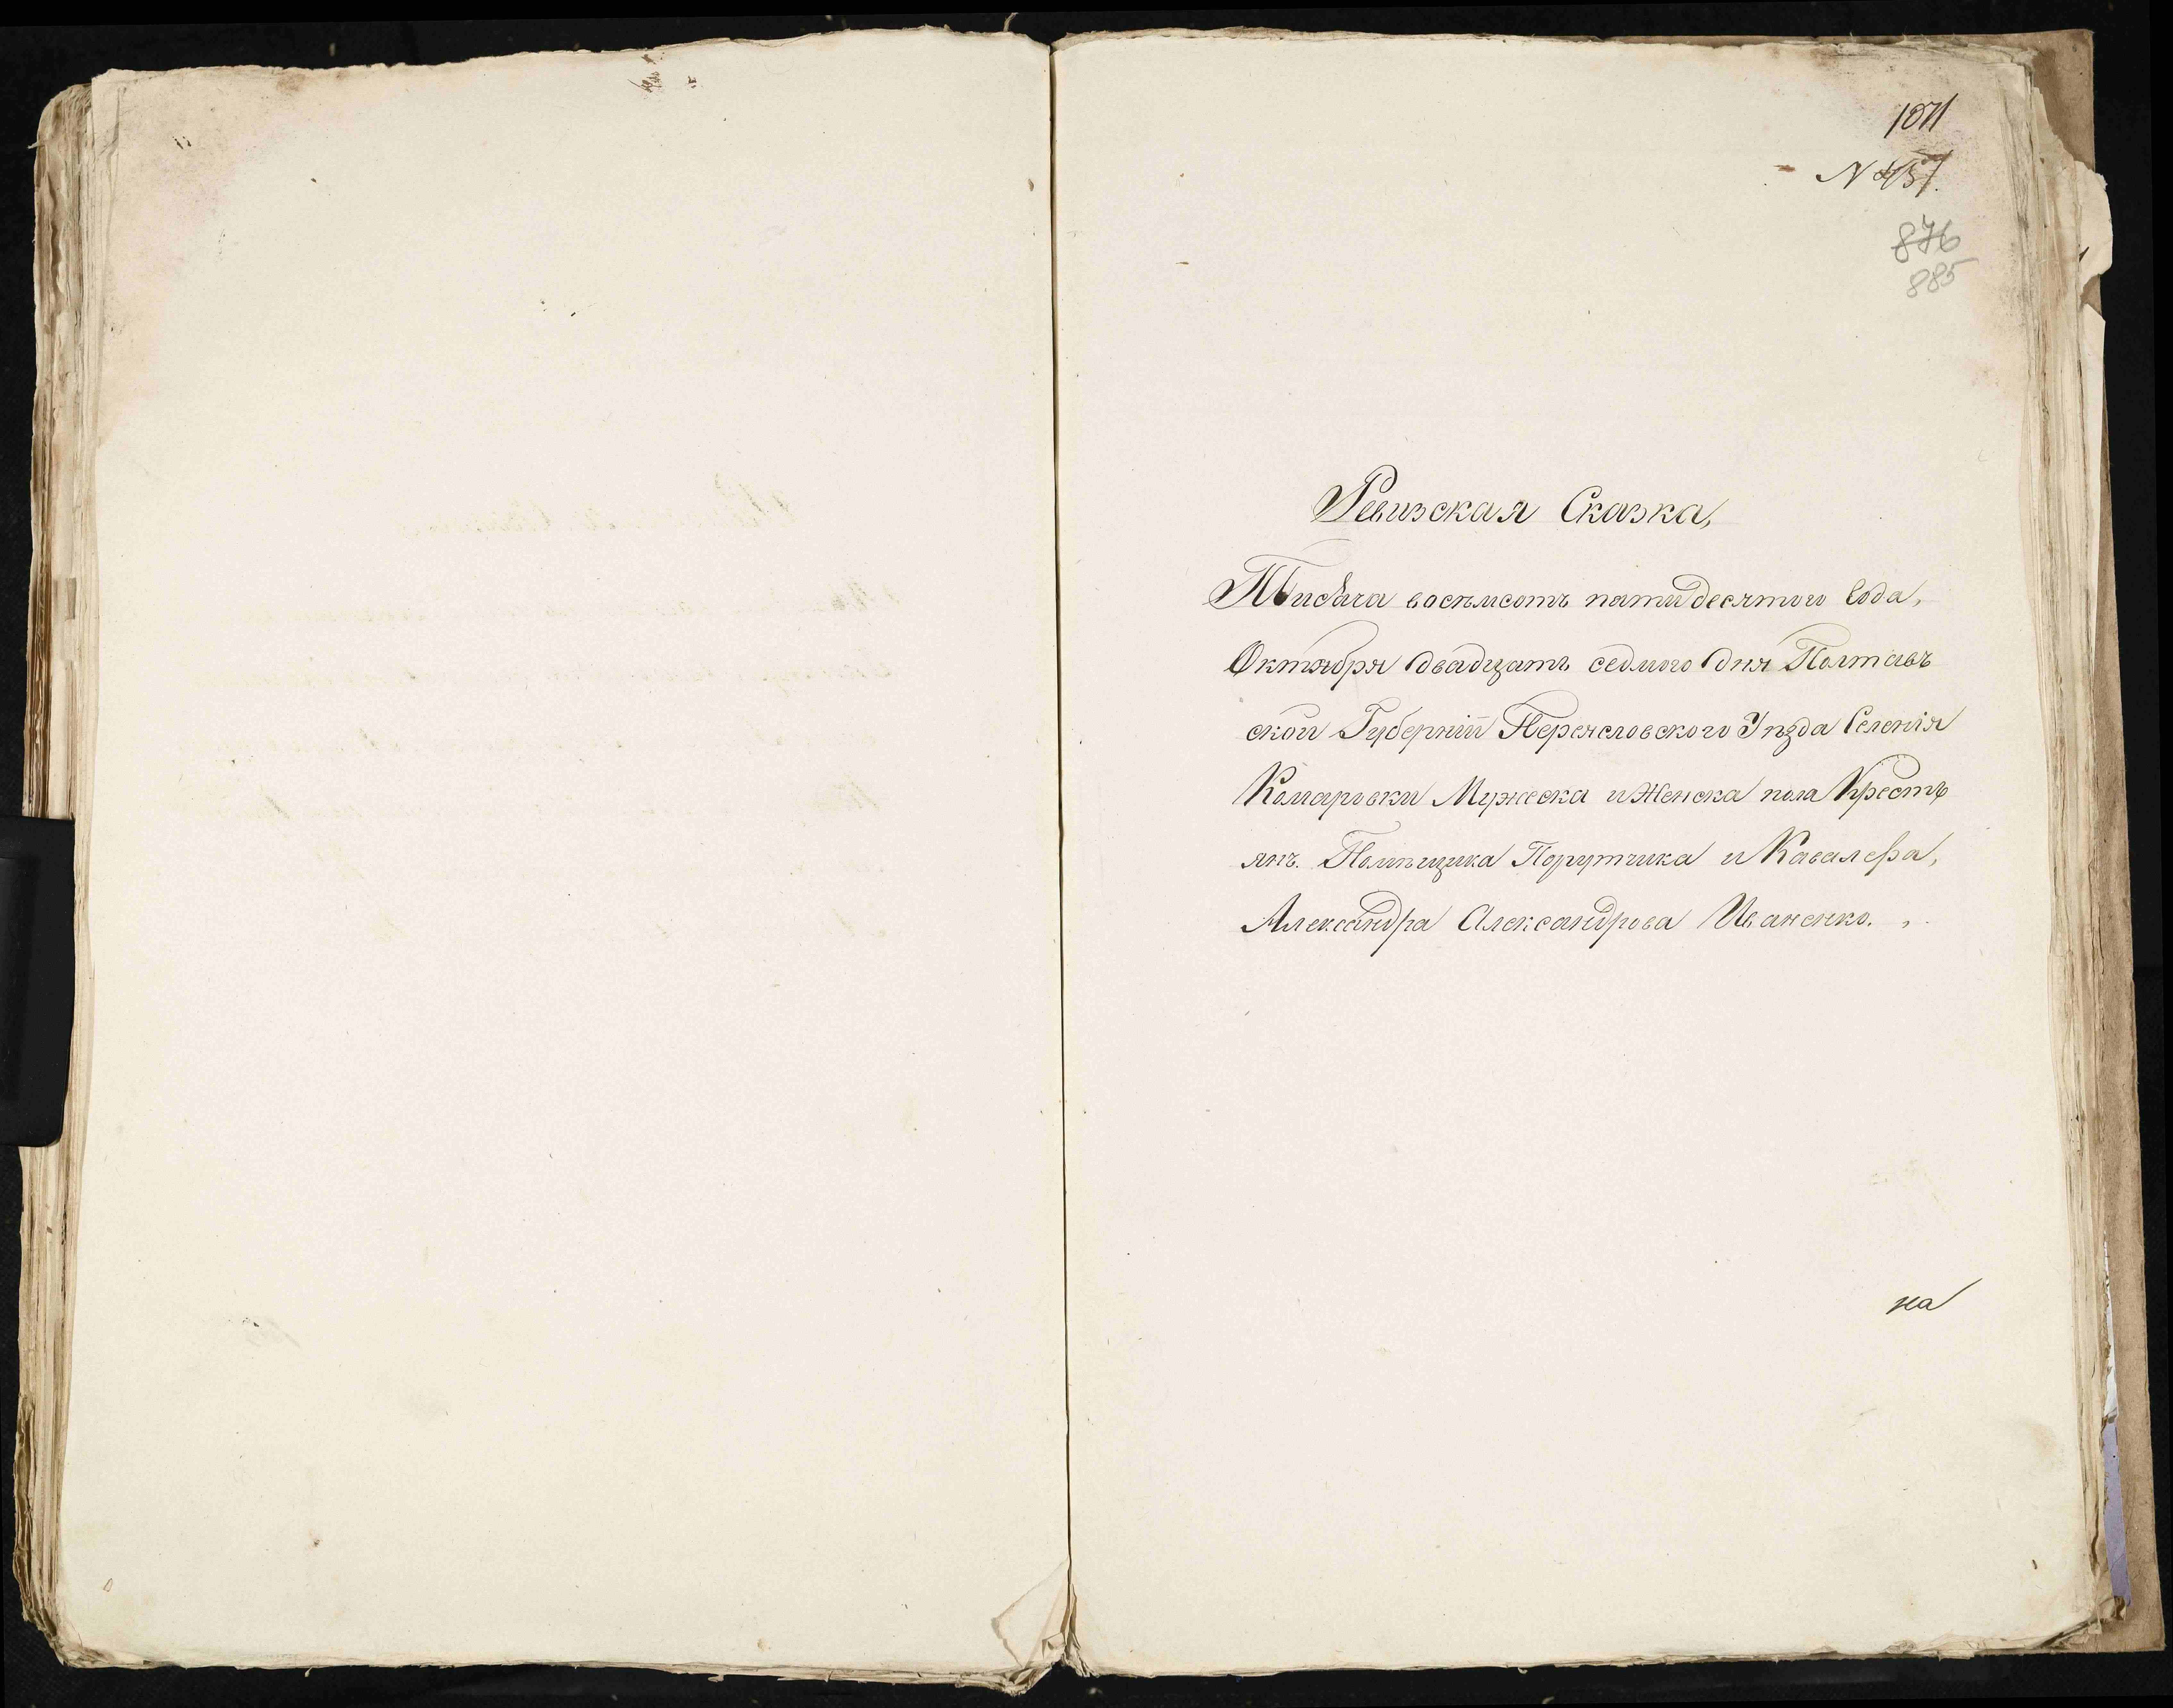 1071
N 457.
876
885
Ревизская Сказка,
Тысяча восемсотъ пятидесятого Года,
Октября двадцать седмого дня Полтавъ
ской Губерніи Переясловского Уѣзда Селенія
Комаровки Мужеска и Женска пола Крестъ
янъ. Помѣщика Порутчика и Кавалера,
Александра Александрова Иваненко.
на